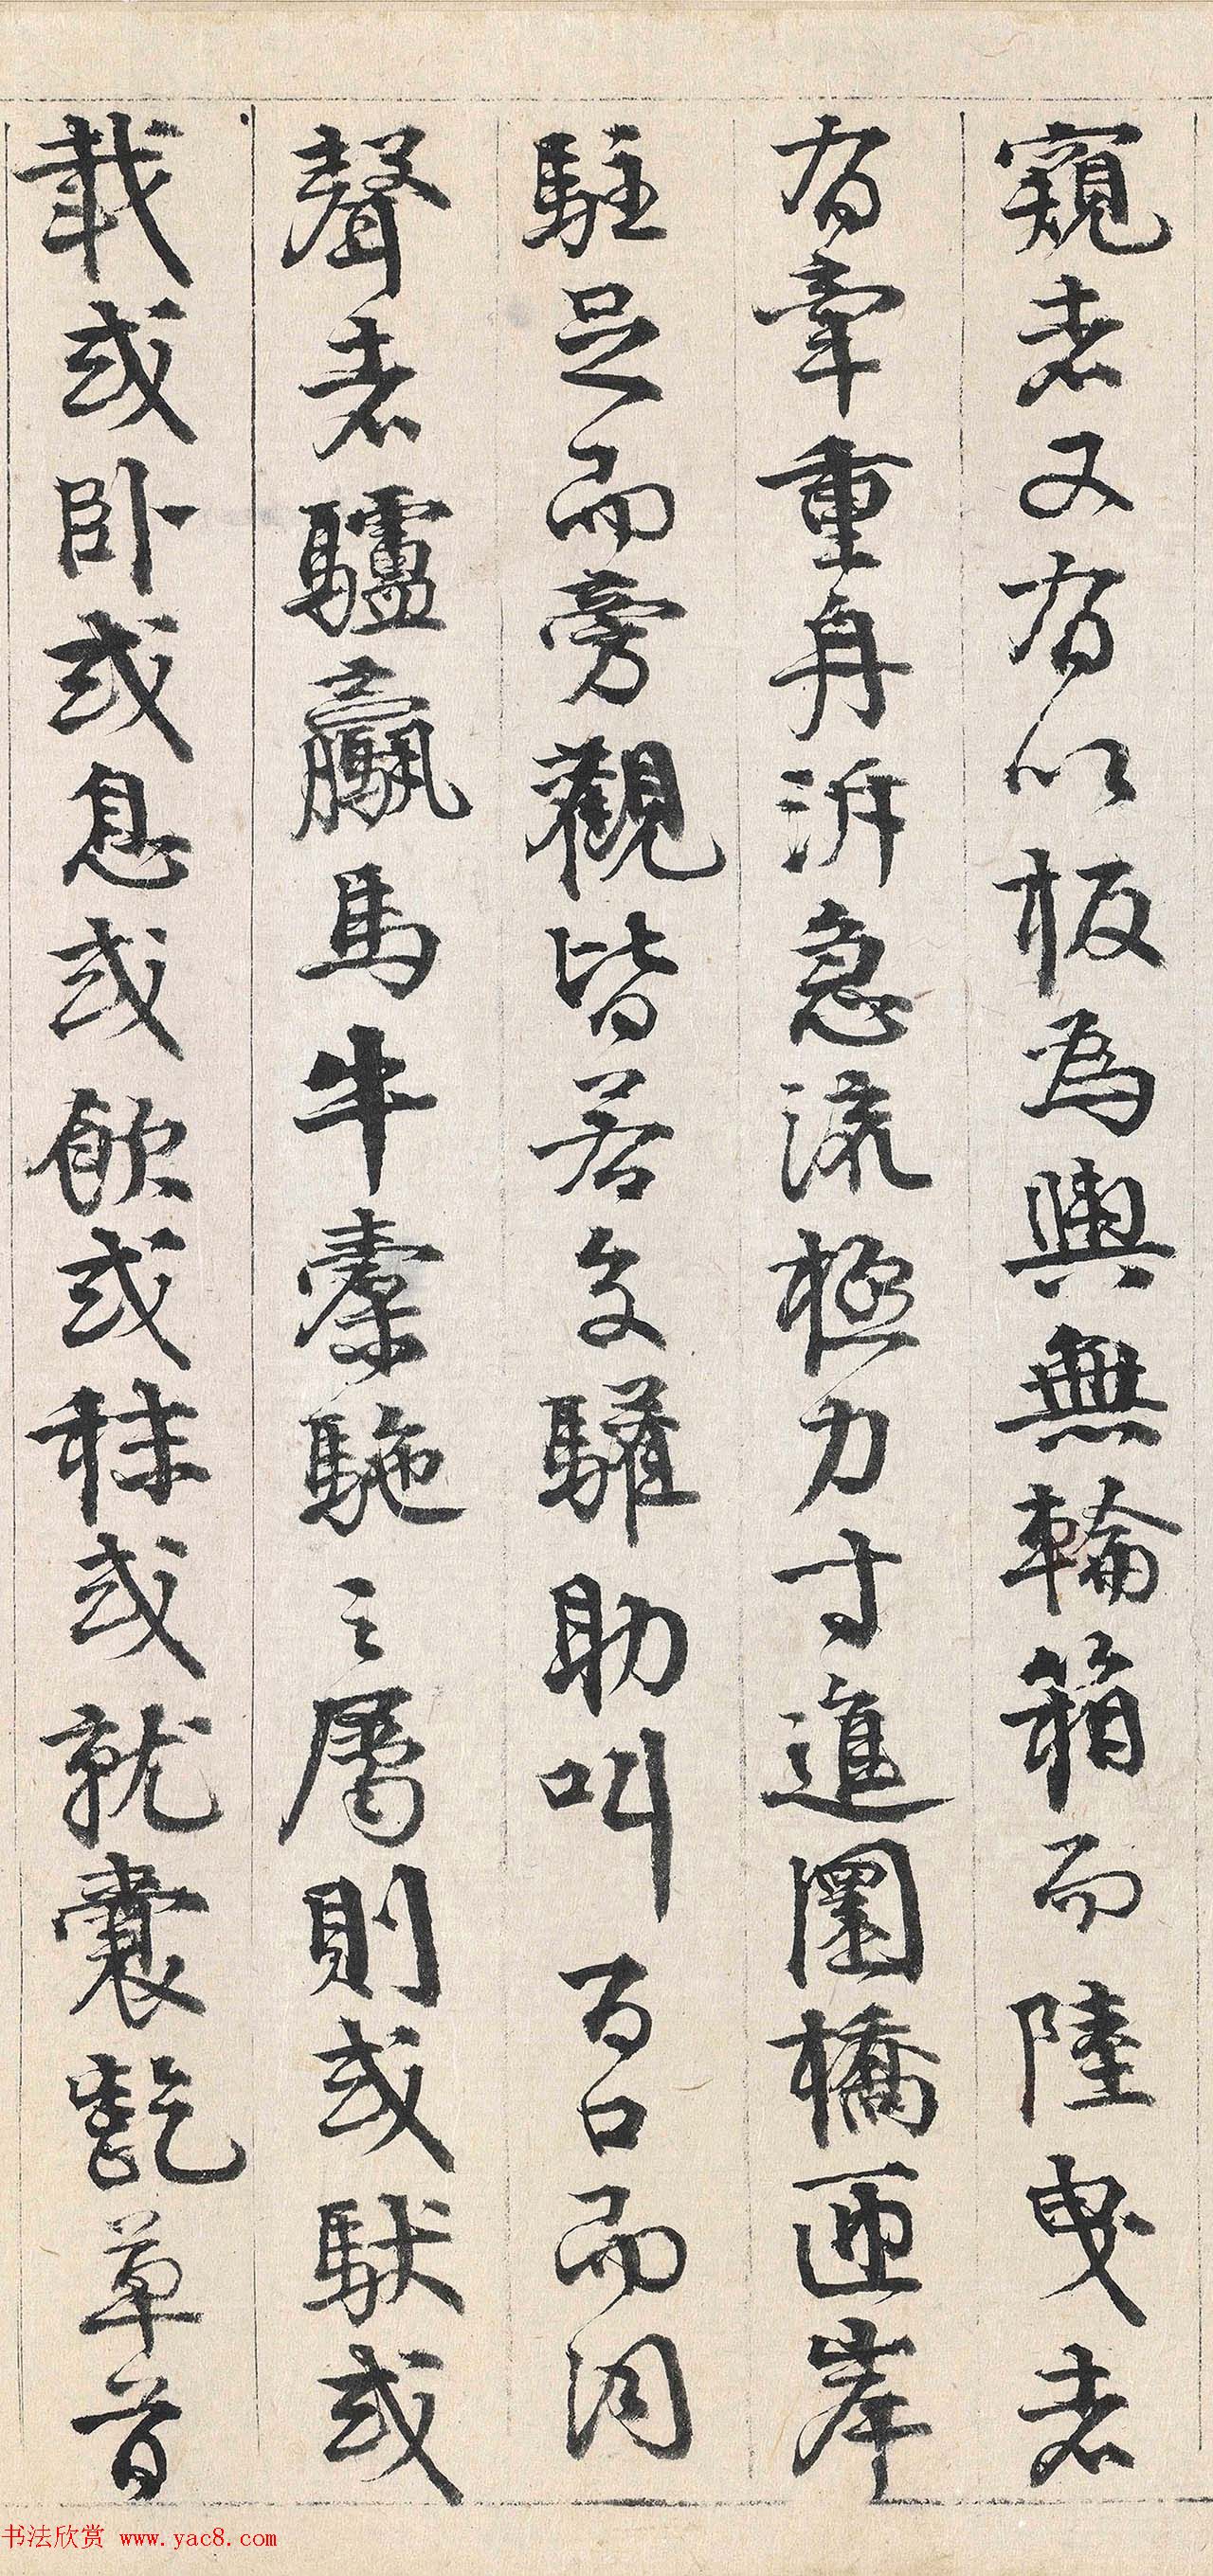 窺者又有以板為輿無輪箱而陸曳者
有牽重舟泝急流極力寸進圜橋匝岸
駐足而旁觀皆若交驩助叫百口而同
聲者驢臝馬牛橐駞之屬則或馱或
載或臥或息或飲或秣或就囊齕草首
书法欣赏 www.yac8.com